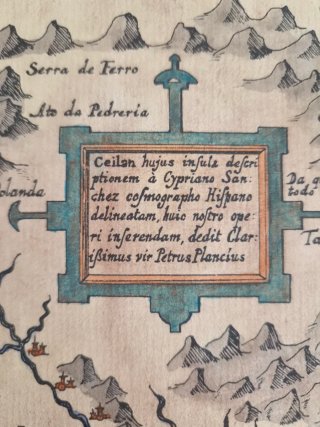 Serra de Ferro
Ato da Pedreria
Ceilan hujus insulæ descri
ptionem à Cypriano San:
chez cosmographo Hispano
delineatam, huic nostro ope:
ri inserendam, dedit Clar:
issimus vir Petrus Plancius
olanda
Da q
todo
Ta